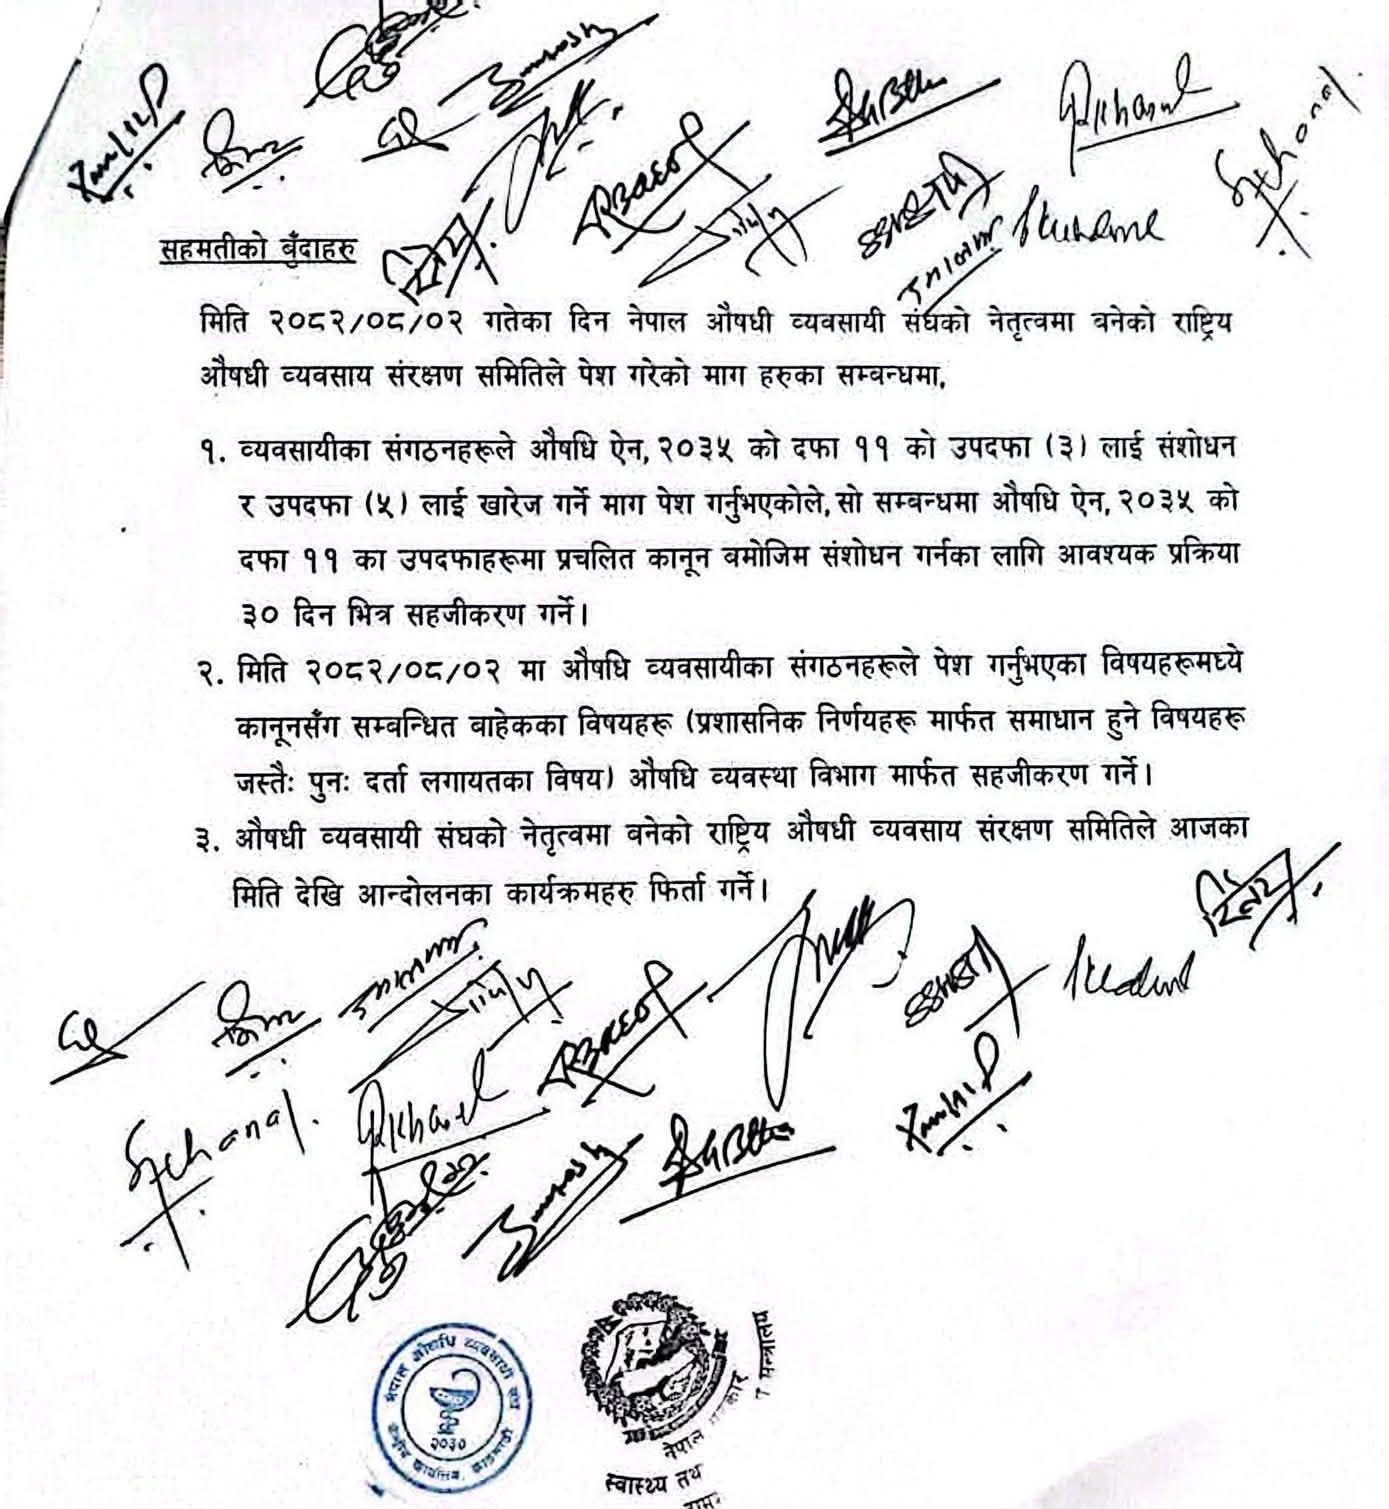 सहमतीको बुँदाहरु
मिति २०८२/०८/०२ गतेका दिन नेपाल औषधी व्यवसायी संघको नेतृत्वमा बनेको राष्ट्रिय
औषधी व्यवसाय संरक्षण समितिले पेश गरेको माग हरुका सम्बन्धमा,
१. व्यवसायीका संगठनहरूले औषधि ऐन, २०३५ को दफा ११ को उपदफा (३) लाई संशोधन
र उपदफा (५) लाई खारेज गर्ने माग पेश गर्नुभएकोले, सो सम्बन्धमा औषधि ऐन, २०३५ को
दफा ११ का उपदफाहरूमा प्रचलित कानून बमोजिम संशोधन गर्नका लागि आवश्यक प्रक्रिया
३० दिन भित्र सहजीकरण गर्ने।
२. मिति २०८२/०८/०२ मा औषधि व्यवसायीका संगठनहरूले पेश गर्नुभएका विषयहरूमध्ये
कानूनसँग सम्बन्धित बाहेकका विषयहरू (प्रशासनिक निर्णयहरू मार्फत समाधान हुने विषयहरू
जस्तैः पुनः दर्ता लगायतका विषय) औषधि व्यवस्था विभाग मार्फत सहजीकरण गर्ने।
३. औषधी व्यवसायी संघको नेतृत्वमा बनेको राष्ट्रिय औषधी व्यवसाय संरक्षण समितिले आजका
मिति देखि आन्दोलनका कार्यक्रमहरु फिर्ता गर्ने।
नेपाल औषधि व्यवसायी संघ
२०३०
केन्द्रीय कार्यालय, काठमाडौं
नेपाल
स्वास्थ्य तथ